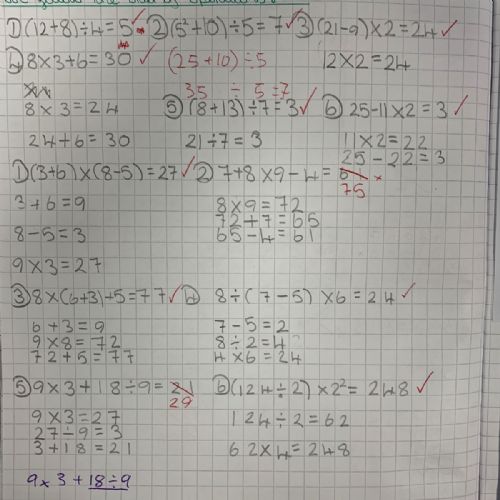 ① (12+8)÷4=5 ② (5²+10)÷5=7 ③ (21-9)×2=24
④ 8×3+6=30 (25+10)÷5 12×2=24
35 ÷ 5 = 7
8×3=24 ⑤ (8+13)÷7=3 ⑥ 25-11×2=3
24+6=30 21÷7=3 11×2=22
25-22=3
① (3+6)×(8-5)=27 ② 7+8×9-4=61
75
3+6=9 8×9=72
72+7=65
8-5=3 65-4=61
9×3=27
③ 8×(6+3)+5=77 ④ 8÷(7-5)×6=24
6+3=9 7-5=2
9×8=72 8÷2=4
72+5=77 4×6=24
⑤ 9×3+18÷9=21 ⑥ (124÷2)×2²=248
29
9×3=27 124÷2=62
27÷9=3
3+18=21 62×4=248
9×3+18÷9